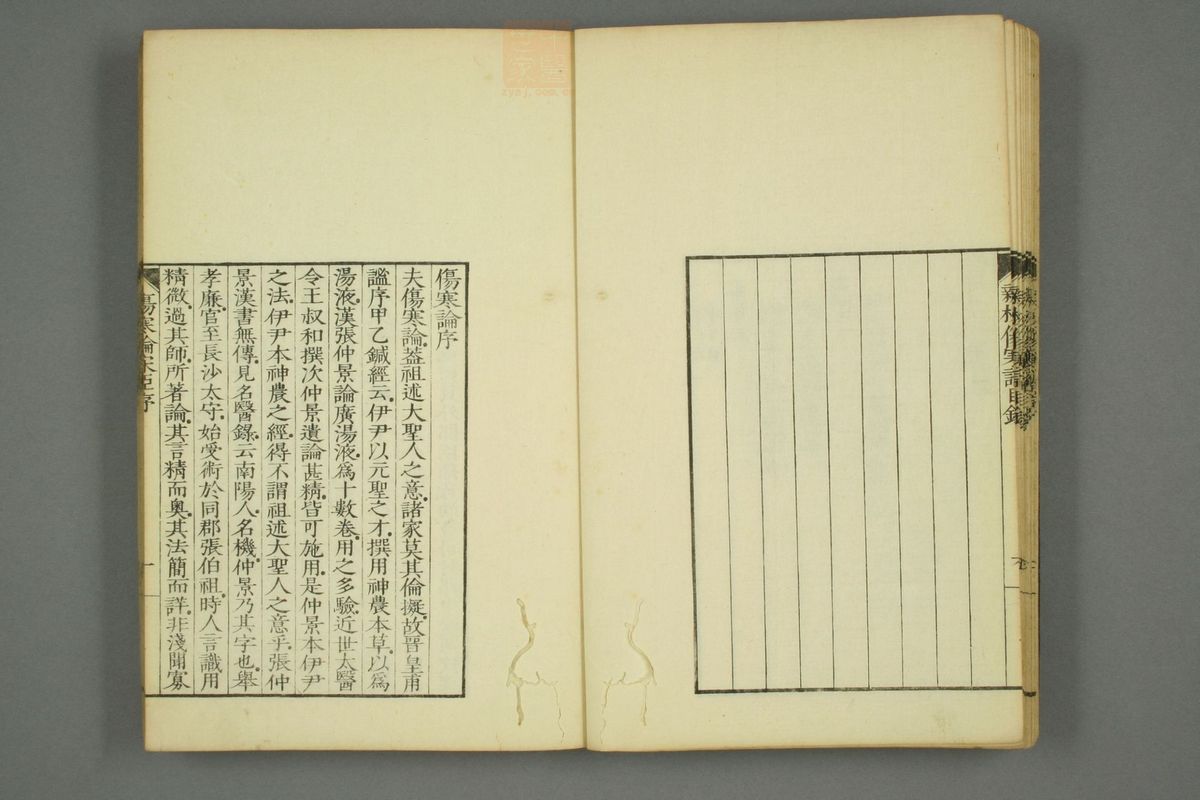 傷寒論序
夫傷寒論蓋祖述大聖人之意諸家莫其倫擬故晉皇甫
謐序甲乙鍼經云伊尹以元聖之才撰用神農本草以爲
湯液漢張仲景論廣湯液爲十數卷用之多驗近世太醫
令王叔和撰次仲景遺論甚精皆可施用是仲景本伊尹
之法伊尹本神農之經得不謂祖述大聖人之意乎張仲
景漢書無傳見名醫錄云南陽人名機仲景乃其字也舉
孝廉官至長沙太守始受術於同郡張伯祖時人言識用
精微過其師所著論其言精而奧其法簡而詳非淺聞寡
傷寒論宋臣序
一